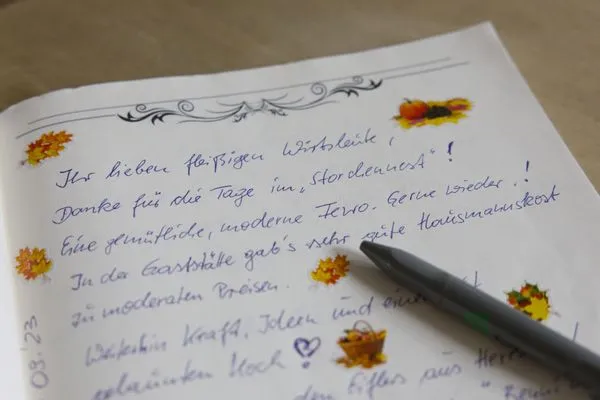 Ihr lieben fleißigen Wirtsleute,
Danke für die Tage im „Stordennest"!
Eine gemütliche, moderne Fewo. Gerne wieder!
In der Gaststätte gab's sehr gute Hausmannskost
zu moderaten Preisen.
Weiterhin Kraft, Ideen und einen
gebäumten Koch!
den Eiflers aus
09.'23